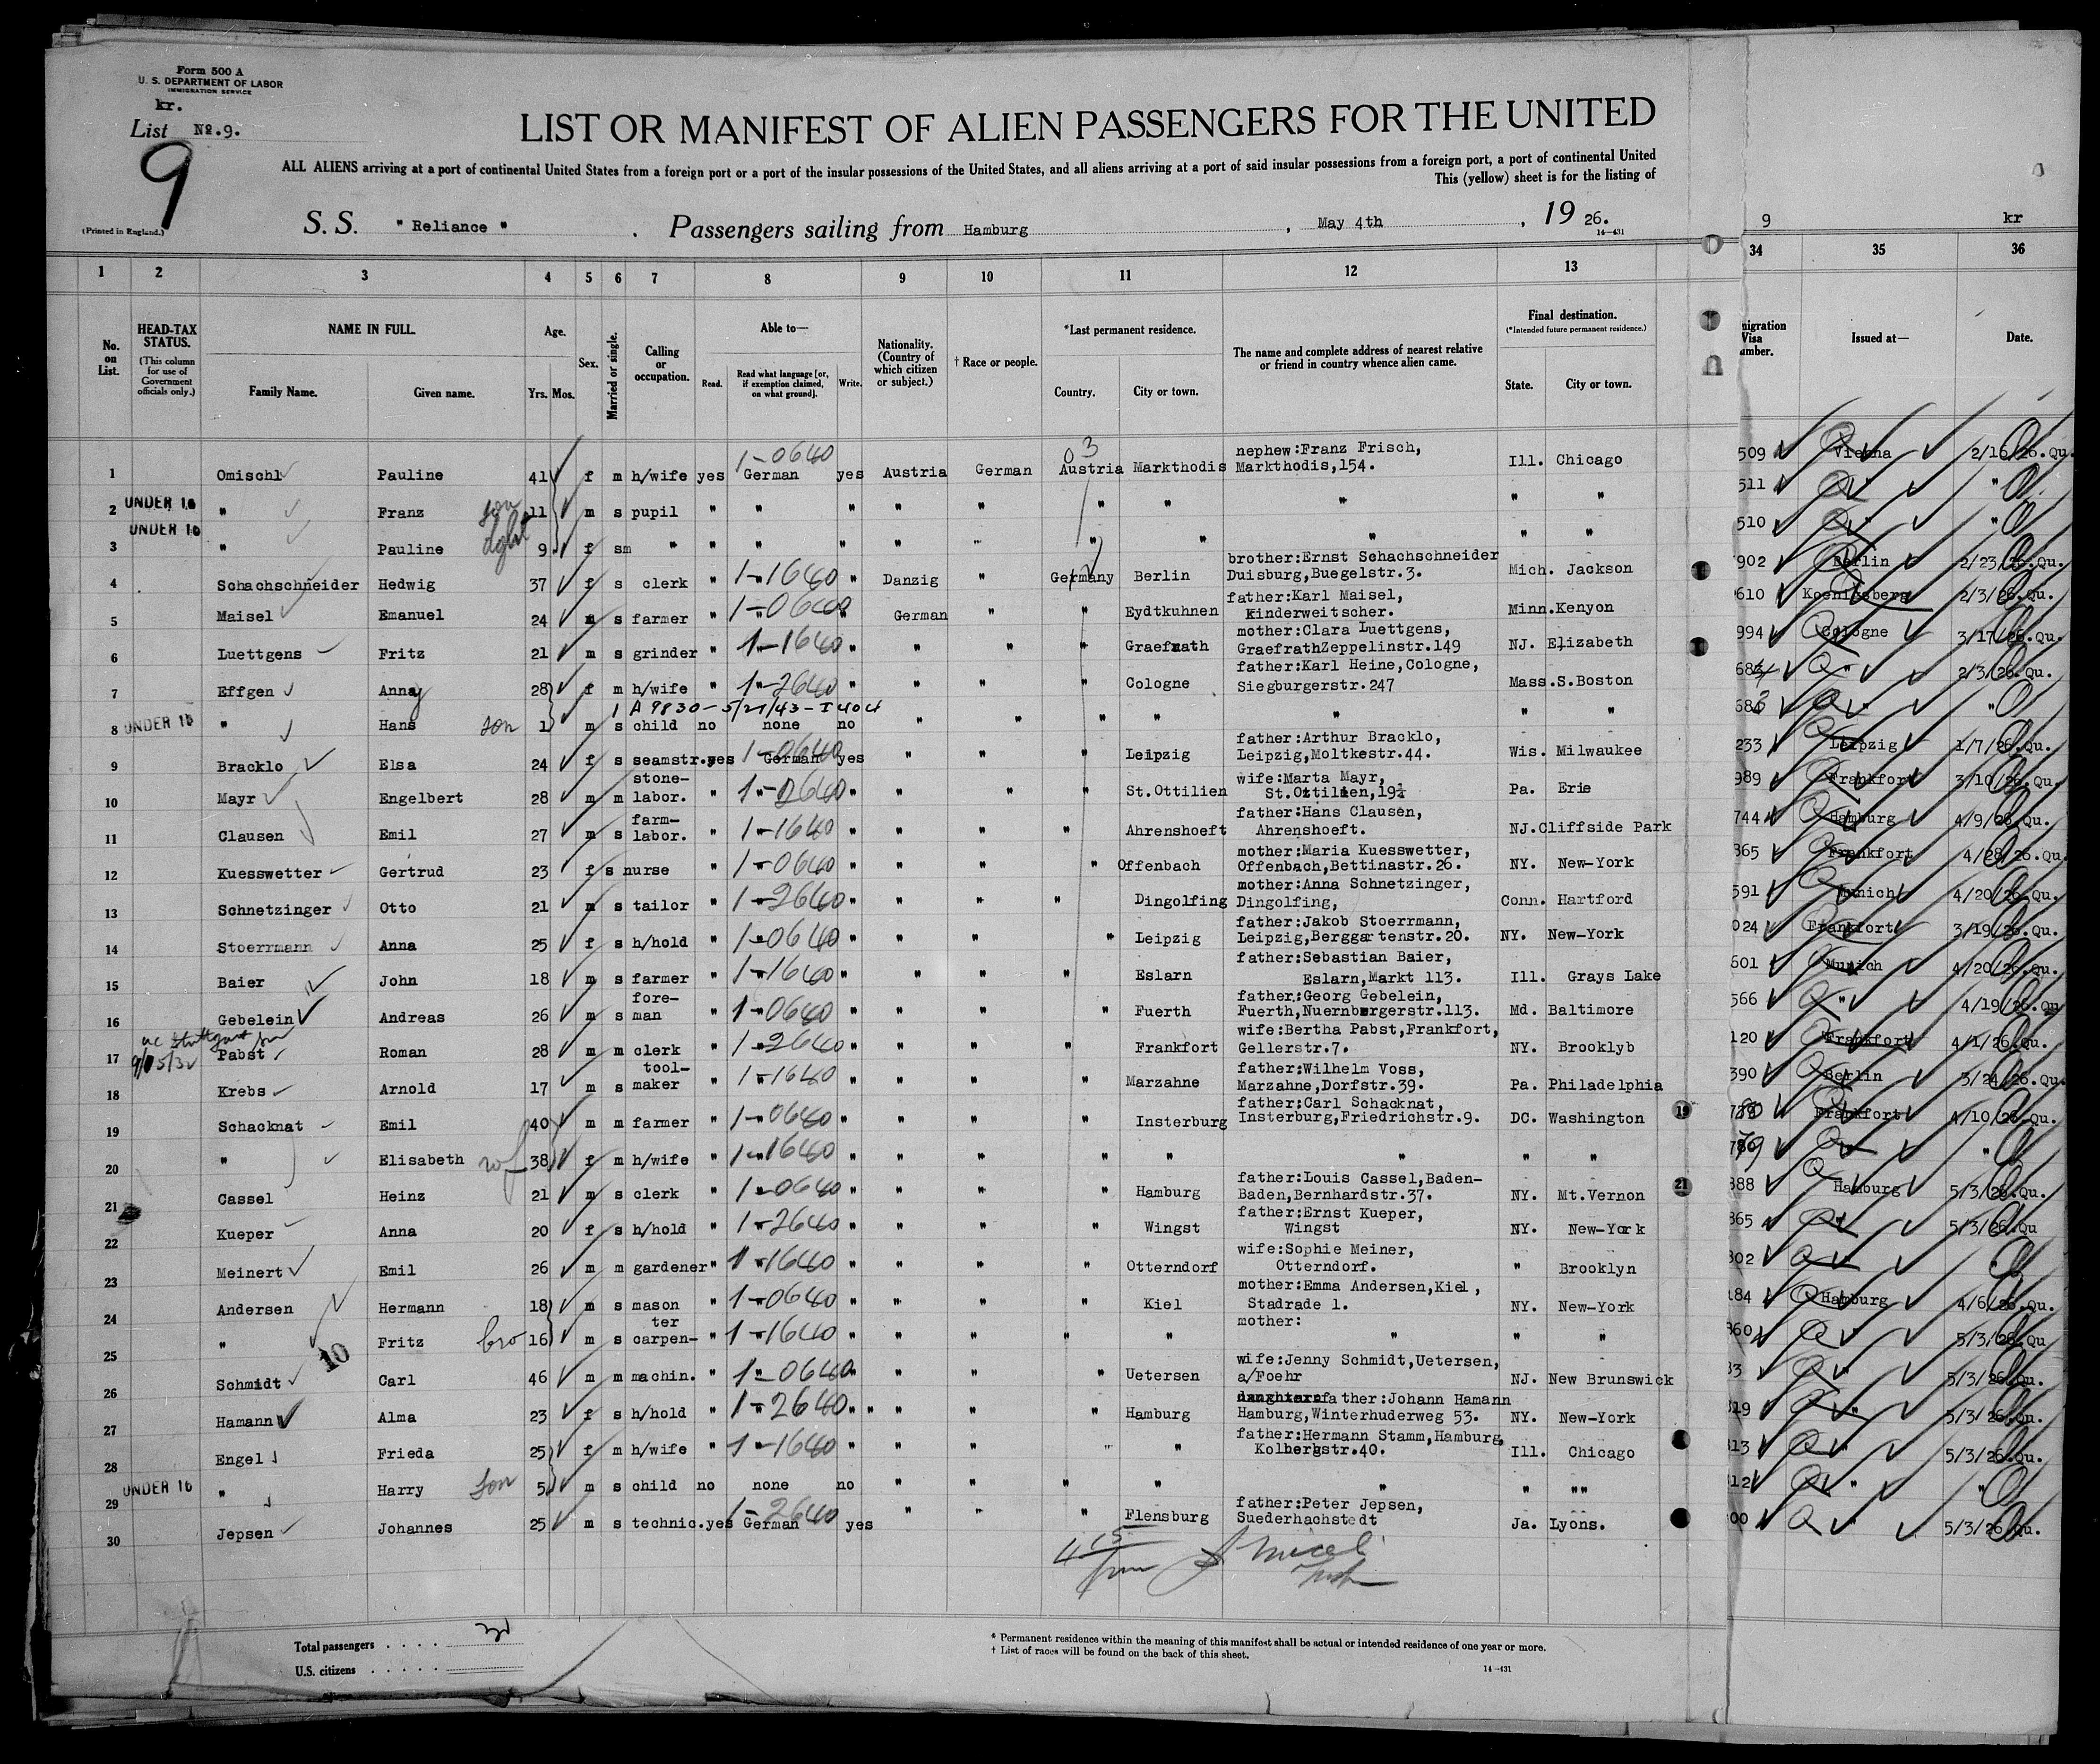 Form 500 A
U. S. DEPARTMENT OF LABOR
IMMIGRATION SERVICE
kr.
List No. 9.
9
(Printed in England.)
LIST OR MANIFEST OF ALIEN PASSENGERS FOR THE UNITED
ALL ALIENS arriving at a port of continental United States from a foreign port or a port of the insular possessions of the United States, and all aliens arriving at a port of said insular possessions from a foreign port, a port of continental United
This (yellow) sheet is for the listing of
S. S. " Reliance " . Passengers sailing from Hamburg , May 4th , 19 26.
14—431
9 kr
1 2 3 4 5 6 7 8 9 10 11 12 13 34 35 36
No. on List.
HEAD-TAX STATUS. (This column for use of Government officials only.)
NAME IN FULL. Family Name. Given name.
Age. Yrs. Mos.
Sex.
Married or single.
Calling or occupation.
Able to— Read. Read what language [or, if exemption claimed, on what ground]. Write.
Nationality. (Country of which citizen or subject.)
† Race or people.
*Last permanent residence. Country. City or town.
The name and complete address of nearest relative or friend in country whence alien came.
Final destination. (*Intended future permanent residence.) State. City or town.
migration Visa umber.
Issued at—
Date.
1 Omischl Pauline 41 f m h/wife yes 1-0640 German yes Austria German 03 Austria Markthodis nephew:Franz Frisch, Markthodis,154. Ill. Chicago 509 Vienna 2/16/26.Qu.
2 UNDER 16 " Franz son 11 m s pupil " " " " " " " " " " 511 " "
3 UNDER 16 " Pauline dght 9 f sm " " " " " " " " " " " 510 " "
4 Schachschneider Hedwig 37 f s clerk " 1-1640 " Danzig " Germany Berlin brother:Ernst Schachschneider Duisburg,Buegelstr.3. Mich. Jackson 902 Berlin 2/23/26.Qu.
5 Maisel Emanuel 24 m s farmer " 1-0640 " German " " Eydtkuhnen father:Karl Maisel, Kinderweitscher. Minn.Kenyon 610 Koenigsberg 2/3/26.Qu.
6 Luettgens Fritz 21 m s grinder " 1-1640 " " " " Graefrath mother:Clara Luettgens, GraefrathZeppelinstr.149 NJ. Elizabeth 994 Cologne 3/17/26.Qu.
7 Effgen Anna 28 f m h/wife " 1-2640 " " " " Cologne father:Karl Heine,Cologne, Siegburgerstr.247 Mass.S.Boston 684 " 2/3/26.Qu.
1 A 9830-5/21/43-I 404
8 UNDER 16 " Hans son 1 m s child no none no " " " " " " " 683 " "
9 Bracklo Elsa 24 f s seamstr.yes 1-0640 German yes " " " Leipzig father:Arthur Bracklo, Leipzig,Moltkestr.44. Wis. Milwaukee 233 Leipzig 1/7/26.Qu.
10 Mayr Engelbert 28 m m stone-labor. " 1-2640 " " " " St.Ottilien wife:Marta Mayr, St.Ottilien,19¼ Pa. Erie 989 Frankfort 3/10/26.Qu.
11 Clausen Emil 27 m s farm-labor. " 1-1640 " " " " Ahrenshoeft father:Hans Clausen, Ahrenshoeft. NJ.Cliffside Park 744 Hamburg 4/9/26.Qu.
12 Kuesswetter Gertrud 23 f s nurse " 1-0640 " " " " Offenbach mother:Maria Kuesswetter, Offenbach,Bettinastr.26. NY. New-York 365 Frankfort 4/28/26.Qu.
13 Schnetzinger Otto 21 m s tailor " 1-2640 " " " " Dingolfing mother:Anna Schnetzinger, Dingolfing, Conn. Hartford 591 Munich 4/20/26.Qu.
14 Stoerrmann Anna 25 f s h/hold " 1-0640 " " " " Leipzig father:Jakob Stoerrmann, Leipzig,Berggartenstr.20. NY. New-York 024 Frankfort 3/19/26.Qu.
15 Baier John 18 m s farmer " 1-1640 " " " " Eslarn father:Sebastian Baier, Eslarn,Markt 113. Ill. Grays Lake 601 Munich 4/20/26.Qu.
16 Gebelein Andreas 26 m s fore-man " 1-0640 " " " " Fuerth father:Georg Gebelein, Fuerth,Nuernbergerstr.113. Md. Baltimore 566 " 4/19/26.Qu
17 Pabst Roman 28 m m clerk " 1-2640 " " " " Frankfort wife:Bertha Pabst,Frankfort, Gellerstr.7. NY. Brooklyb 120 Frankfort 4/1/26.Qu.
18 Krebs Arnold 17 m s tool-maker " 1-1640 " " " " Marzahne father:Wilhelm Voss, Marzahne,Dorfstr.39. Pa. Philadelphia 390 Berlin 3/24/26.Qu.
19 Schacknat Emil 40 m m farmer " 1-0640 " " " " Insterburg father:Carl Schacknat, Insterburg,Friedrichstr.9. DC. Washington 19 Frankfort 4/10/26.Qu.
20 " Elisabeth wf 38 f m h/wife " 1-1640 " " " " " " " " 79 " "
21 Cassel Heinz 21 m s clerk " 1-0640 " " " " Hamburg father:Louis Cassel,Baden-Baden,Bernhardstr.37. NY. Mt.Vernon 21 388 Hamburg 5/3/26.Qu.
22 Kueper Anna 20 f s h/hold " 1-2640 " " " " Wingst father:Ernst Kueper, Wingst NY. New-York 365 " 5/3/26.Qu
23 Meinert Emil 26 m m gardener" 1-1640 " " " " Otterndorf wife:Sophie Meiner, Otterndorf. " Brooklyn 302 " "
24 Andersen Hermann 18 m s mason " 1-0640 " " " " Kiel mother:Emma Andersen,Kiel, Stadrade 1. NY. New-York 184 Hamburg 4/6/26.Qu.
25 " Fritz bro 16 m s carpen-ter " 1-1640 " " " " " mother: " " " 360 " 5/3/26.Qu
10
26 Schmidt Carl 46 m m machin. " 1-0640 " " " " Uetersen wife:Jenny Schmidt,Uetersen, a/Foehr NJ. New Brunswick 33 " 5/3/26.Qu.
27 Hamann Alma 23 f s h/hold " 1-2640 " " " " Hamburg father:Johann Hamann Hamburg,Winterhuderweg 53. NY. New-York 319 " 5/3/26.Qu.
28 Engel Frieda 25 f m h/wife " 1-1640 " " " " " father:Hermann Stamm,Hamburg, Kolbergstr.40. Ill. Chicago 313 " 5/3/26.Qu.
29 UNDER 16 " Harry son 5 m s child no none no " " " " " " "" 312 " "
30 Jepsen Johannes 25 m s technic.yes 1-2640 German yes " " " Flensburg father:Peter Jepsen, Suederhachstedt Ja. Lyons. 300 " 5/3/26.Qu.
Total passengers . . . .
U.S. citizens . . . . .
* Permanent residence within the meaning of this manifest shall be actual or intended residence of one year or more.
† List of races will be found on the back of this sheet.
14—431